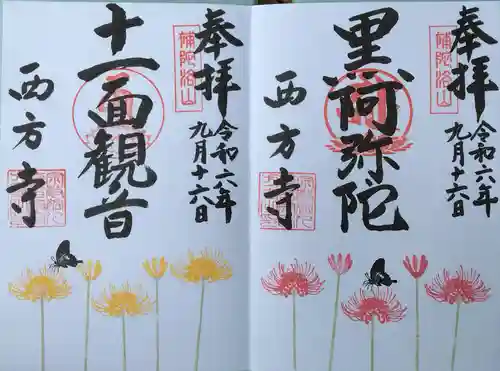 奉拝
令和六年
九月十六日
補陀洛山
黒阿弥陀
西方寺
奉拝
令和六年
九月十六日
補陀洛山
十一面観音
西方寺